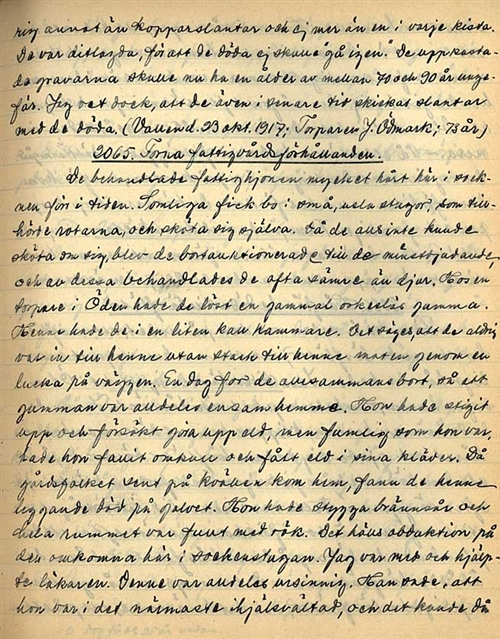 rig annat än kopparslantar och ej mer än en i varje kista.
De var ditlagda, för att de döda ej skulle "gå igen." De uppkasta-
de gravarna skulle nu ha en ålder av mellan 70 och 90 år unge-
fär. Jag vet dock, att de även i senare tid skickat slantar
med de döda. (Vallend. 23 okt. 1917; Torparen J. Ödmark; 73 år)
2065. Forna fattigvårdsförhållanden.
De behandlade fattighjonen mycket hårt här i sock-
nen för i tiden. Somliga fick bo i små, usla stugor, som till-
hörde rotarna, och sköta sig själva. Då de alls inte kunde
sköta om sig, blev de bortauktionerade till de minstbjudande,
och av dessa behandlades de ofta sämre än djur. Hos en
torpare i Oden hade de löst en gammal orkeslös gumma.
Henne hade de i en liten kall kammare. Det säges, att de aldrig
var in till henne utan stack till henne maten genom en
lucka på väggen. En dag for de allesammans bort, så att
gumman var alldeles ensam hemma. Hon hade stigit
upp och försökt göra upp eld, men fumlig som hon var,
hade hon fallit omkull och fått eld i sina kläder. Då
gårdsfolket sent på kvällen kom hem, fann de henne
liggande död på golvet. Hon hade stygga brännsår och
hela rummet var fullt med rök. Det hölls obduktion på
den omkomna här i sockenstugan. Jag var med och hjälp-
te läkaren. Denne var alldeles ursinnig. Han sade, att
hon var i det närmaste ihjälsvältad, och det kunde då